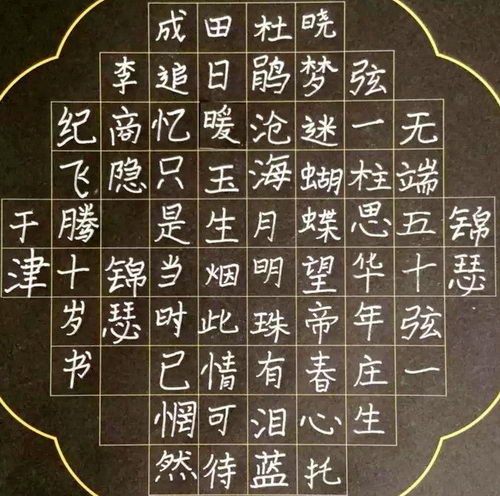 锦瑟
无端五十弦一
弦一柱思华年庄生
晓梦迷蝴蝶望帝春心托
杜鹃沧海月明珠有泪蓝
田日暖玉生烟此情可待
成追忆只是当时已惘然
李商隐 锦瑟
纪飞腾十岁书
于津